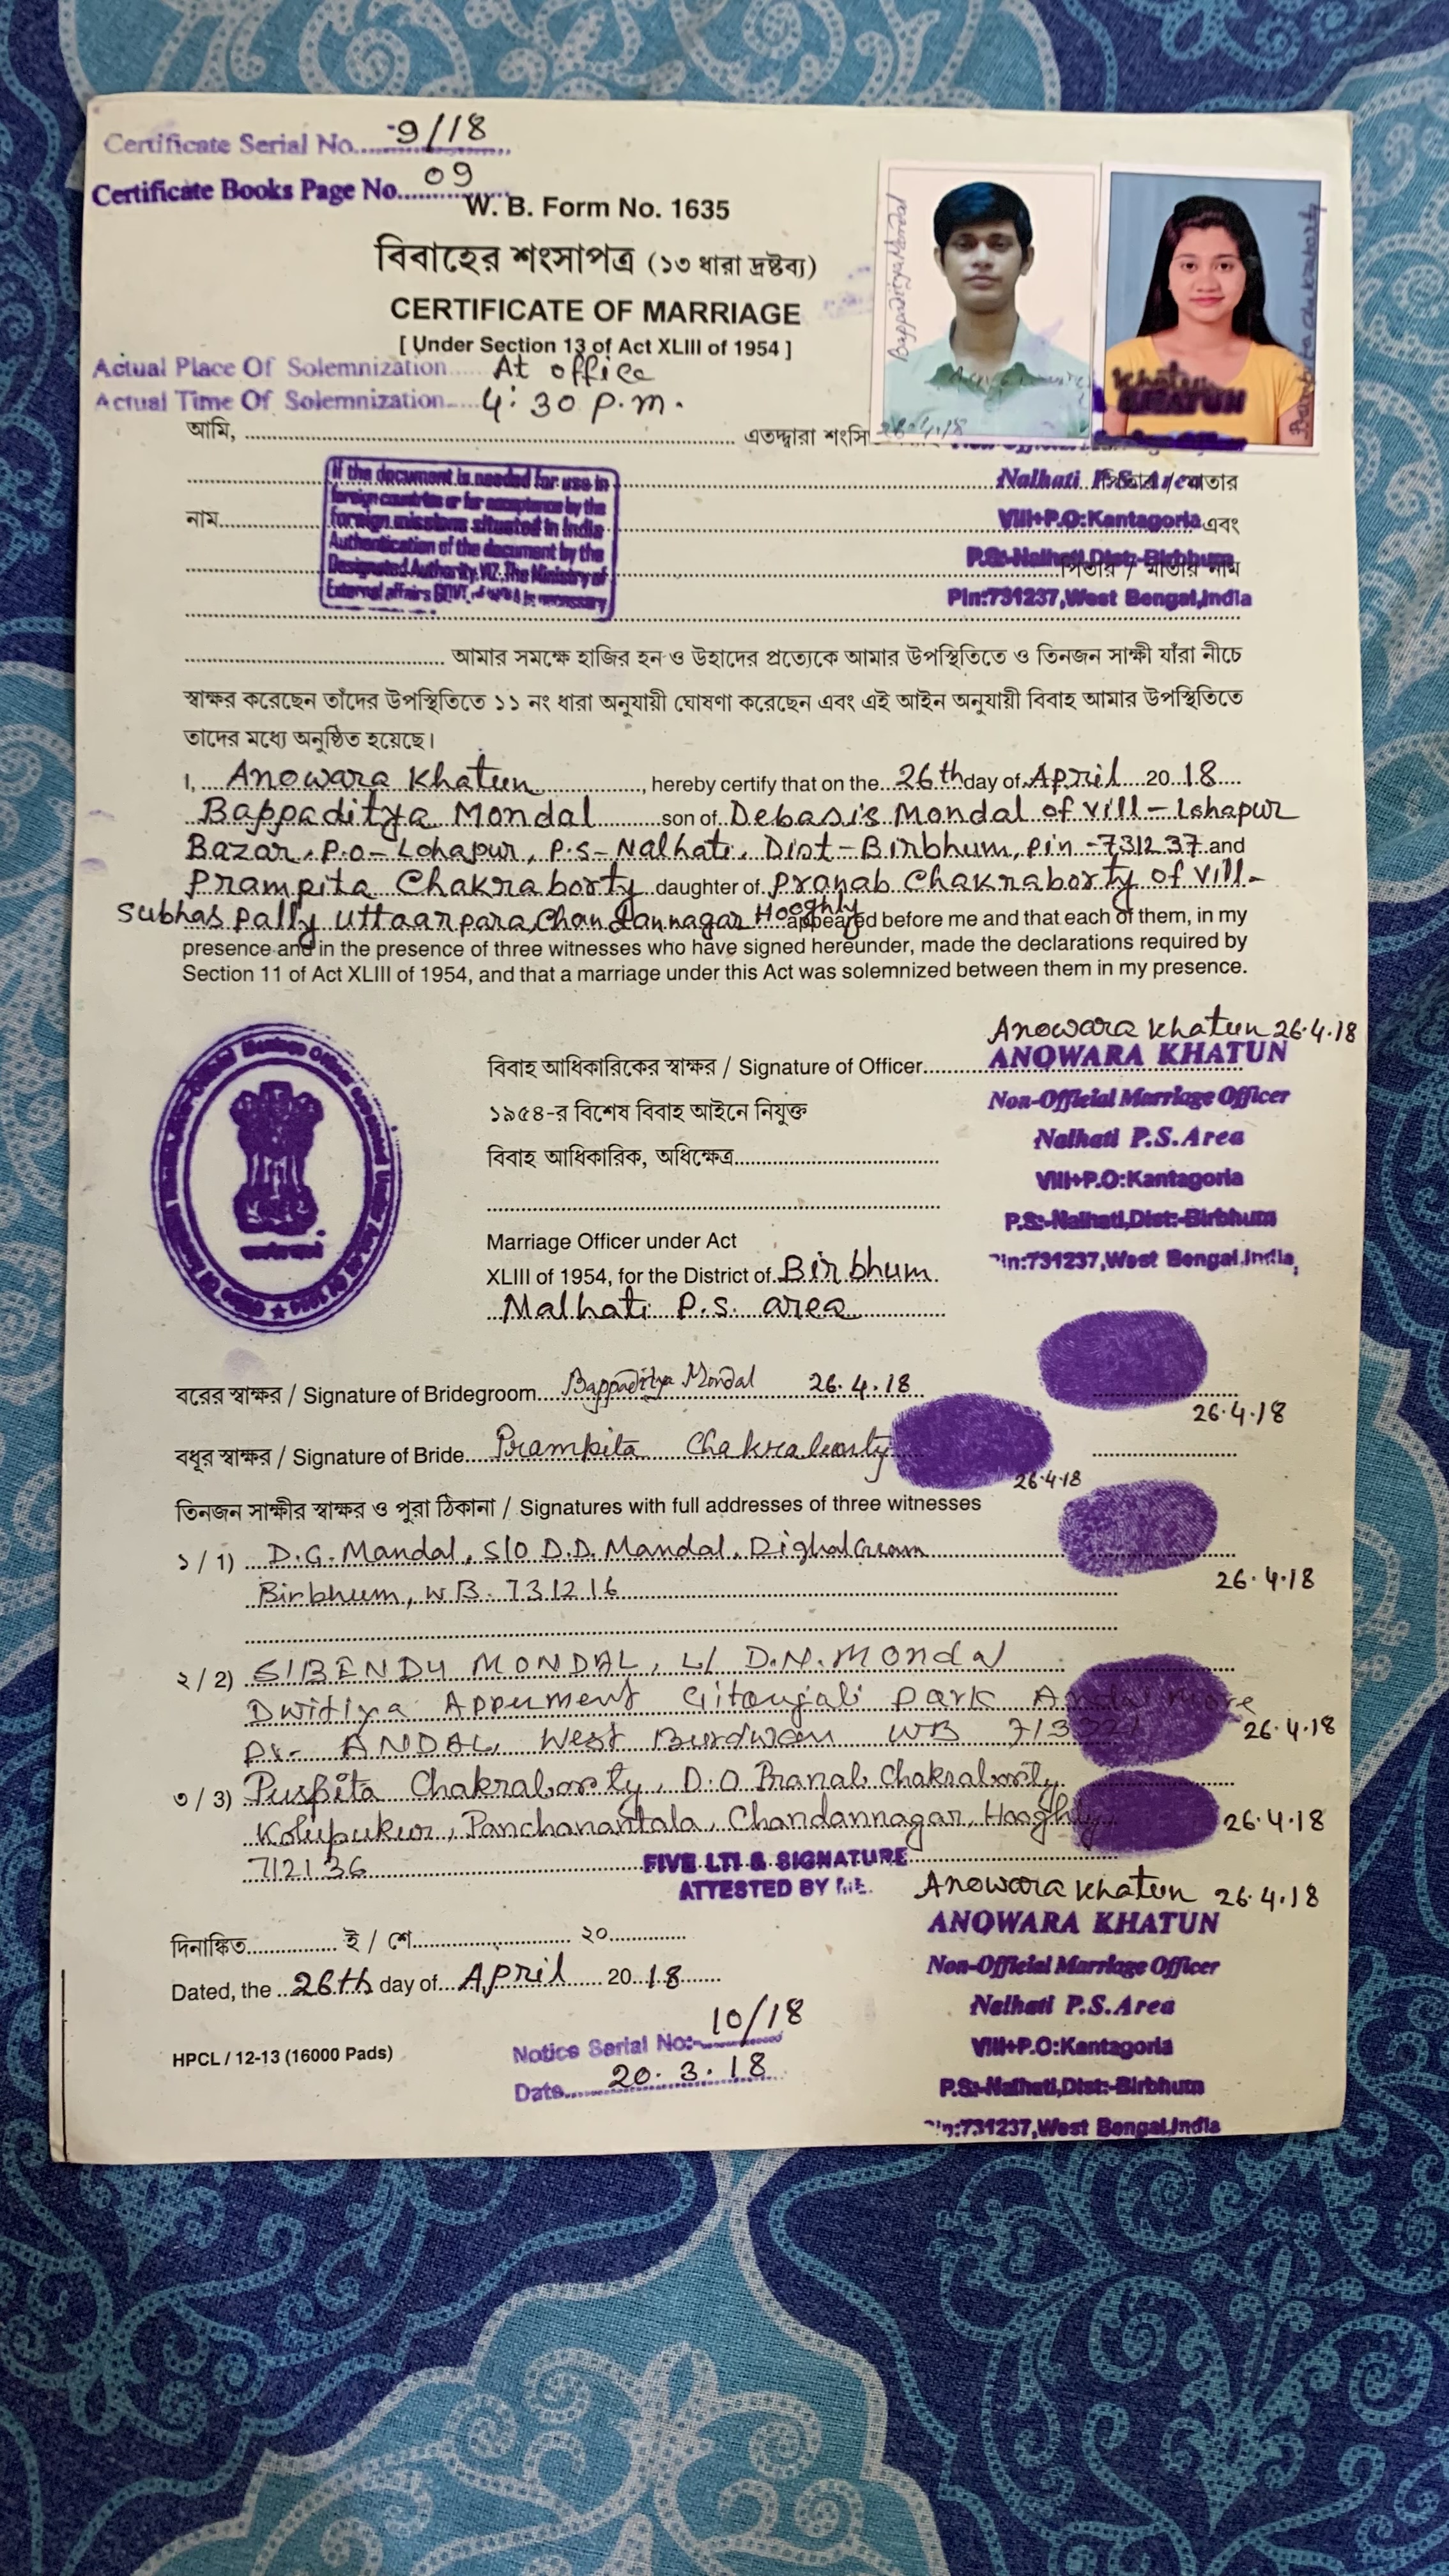 Certificate Serial No. 9/18
Certificate Books Page No. 09
W. B. Form No. 1635
বিবাহের শংসাপত্র (১৩ ধারা দ্রষ্টব্য)
CERTIFICATE OF MARRIAGE
[ Under Section 13 of Act XLIII of 1954 ]
Actual Place Of Solemnization At office
Actual Time Of Solemnization 4:30 p.m.
Bappaditya Mondal
Khatun
KHATUN
26.4.18
আমি, এতদ্দ্বারা শংসি
Nalhati P.S.Area
পিতার / মাতার
নাম
Vill+P.O:Kantagoria
এবং
P.S:-Nalhati,Dist:-Birbhum
পিতার / মাতার নাম
Pin:731237,West Bengal,India
If the document is needed for use in
foreign countries or for acceptance by the
foreign missions situated in India
Authentication of the document by the
Designated Authority.VIZ.The Ministry of
External affairs GOVT. of is necessary
আমার সমক্ষে হাজির হন ও উহাদের প্রত্যেকে আমার উপস্থিতিতে ও তিনজন সাক্ষী যাঁরা নীচে
স্বাক্ষর করেছেন তাঁদের উপস্থিতিতে ১১ নং ধারা অনুযায়ী ঘোষণা করেছেন এবং এই আইন অনুযায়ী বিবাহ আমার উপস্থিতিতে
তাদের মধ্যে অনুষ্ঠিত হয়েছে।
I, Anowara Khatun, hereby certify that on the 26th day of April 2018
Bappaditya Mondal son of Debasis Mondal of vill-Lohapur
Bazar, P.O-Lohapur, P.S-Nalhati, Dist-Birbhum, Pin-731237 and
Prampita Chakraborty daughter of Pranab Chakraborty of vill-
Subhas pally Uttaarpara, Chandannagar Hooghly appeared before me and that each of them, in my
presence and in the presence of three witnesses who have signed hereunder, made the declarations required by
Section 11 of Act XLIII of 1954, and that a marriage under this Act was solemnized between them in my presence.
Anowara Khatun 26.4.18
বিবাহ আধিকারিকের স্বাক্ষর / Signature of Officer ANOWARA KHATUN
Non-Official Marriage Officer
১৯৫৪-র বিশেষ বিবাহ আইনে নিযুক্ত
Nalhati P.S.Area
বিবাহ আধিকারিক, অধিক্ষেত্র
Vill+P.O:Kantagoria
P.S:-Nalhati,Dist:-Birbhum
Marriage Officer under Act
Pin:731237,West Bengal,India
XLIII of 1954, for the District of Birbhum
Nalhati P.S. area
বরের স্বাক্ষর / Signature of Bridegroom Bappaditya Mondal 26.4.18
26.4.18
বধূর স্বাক্ষর / Signature of Bride Prampita Chakraborty
26.4.18
তিনজন সাক্ষীর স্বাক্ষর ও পুরা ঠিকানা / Signatures with full addresses of three witnesses
১ / 1) D.G. Mandal, S/O D.D. Mandal, Dighalgram
Birbhum, WB. 731216
26.4.18
২ / 2) SIBENDU MONDAL, L/ D.N. Mondal
Dwitiya Apperment Gitanjali Park Andal More
PS- ANDAL, West Burdwan WB 713321
26.4.18
৩ / 3) Puspita Chakraborty, D.O Pranab Chakraborty
Kolupukur, Panchanantala, Chandannagar, Hooghly
26.4.18
712136
FIVE LTI & SIGNATURE
ATTESTED BY ME.
Anowara Khatun 26.4.18
ANOWARA KHATUN
Non-Official Marriage Officer
Nalhati P.S.Area
Vill+P.O:Kantagoria
P.S:-Nalhati,Dist:-Birbhum
Pin:731237,West Bengal,India
দিনাঙ্কিত ই / শে ২০
Dated, the 26th day of April 2018
HPCL / 12-13 (16000 Pads)
Notice Serial No:- 10/18
Date 20.3.18